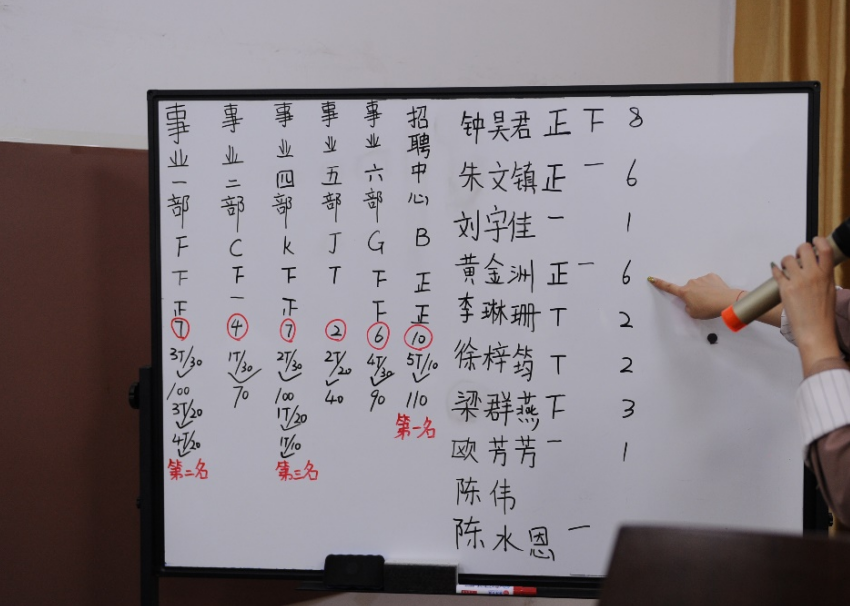 事业一部
F
下
正
7
3T/30
100
3T/20
4T/20
第二名
事业二部
C
下
一
4
1T/30
70
事业四部
K
下
正
7
2T/30
100
1T/20
1T/10
第三名
事业五部
J
T
2
2T/20
40
事业六部
G
下
下
6
4T/30
90
招聘中心
B
正
正
10
5T/10
110
第一名
钟昊君 正 下 8
朱文镇 正 一 6
刘宇佳 一 1
黄金洲 正 一 6
李琳珊 T 2
徐梓筠 T 2
梁群燕 下 3
欧芳芳 一 1
陈伟
陈水恩 一